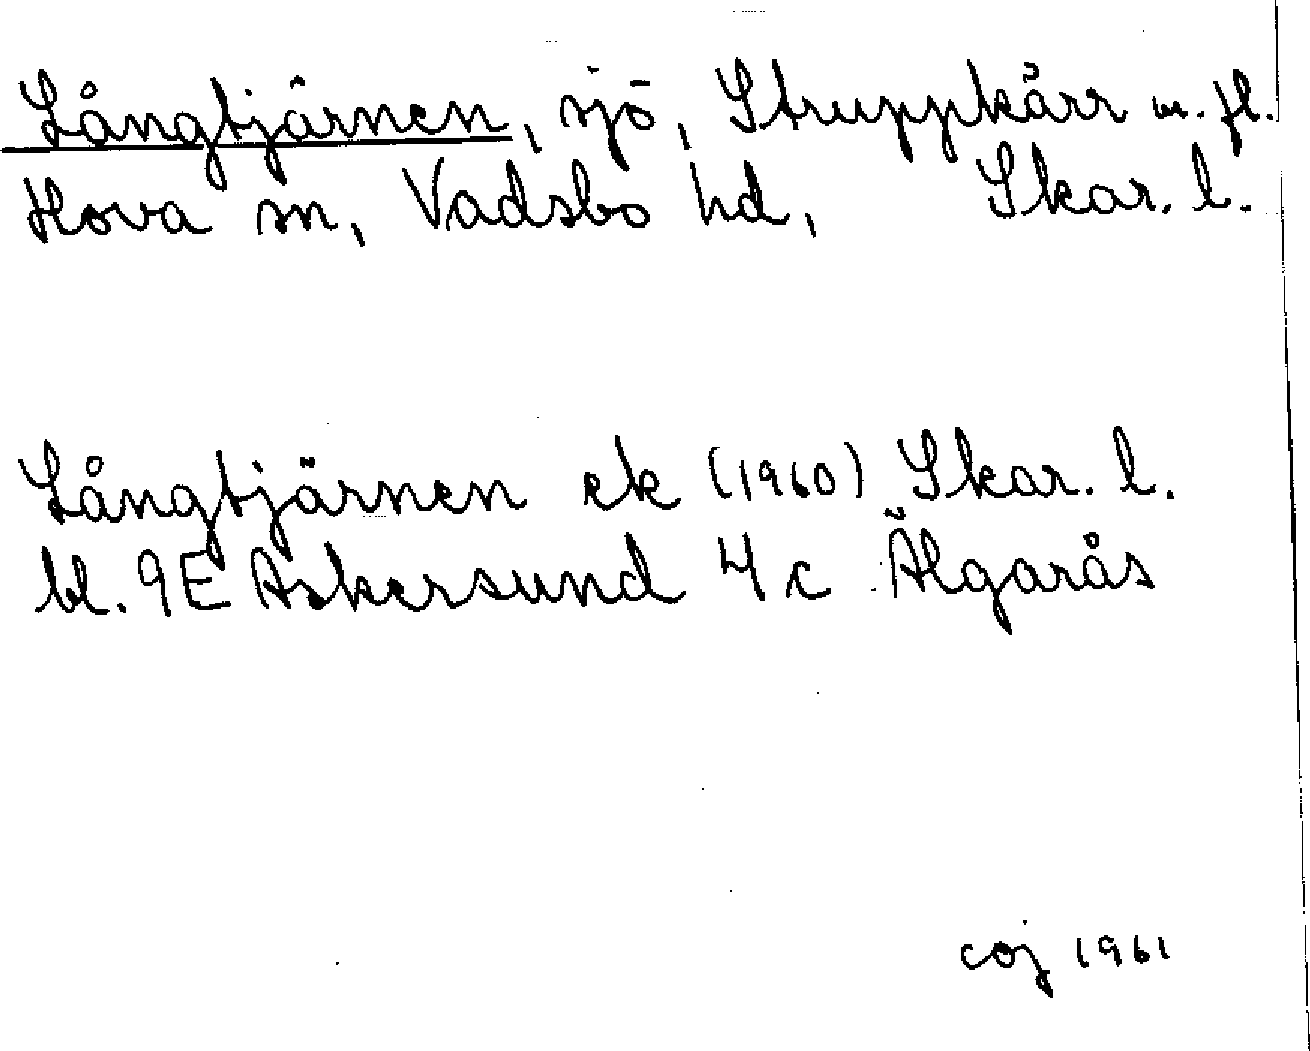 Långtjärnen, sjö, Struppkärr m. fl.
Hova sn, Vadsbo hd, Skar. l.
Långtjärnen ek (1960) Skar. l.
bl. 9E Askersund 4c Älgarås
coj 1961